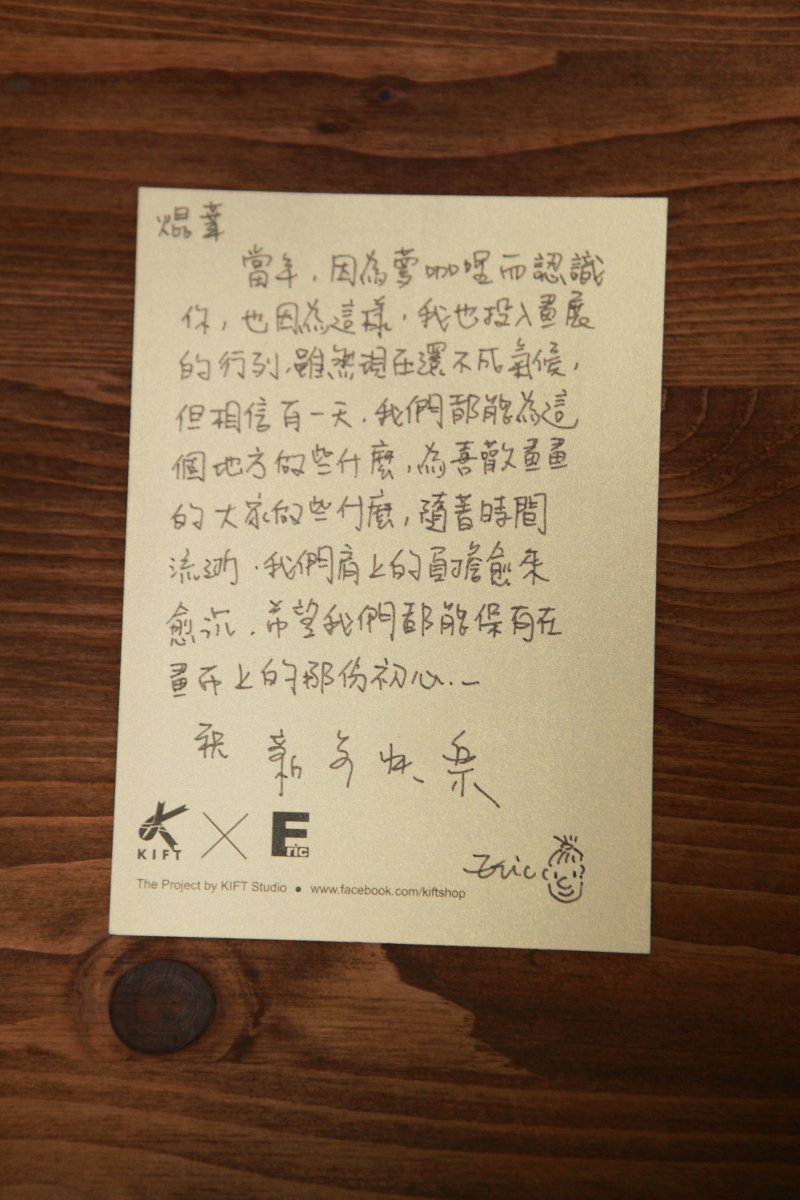 焜葦
當年,因為夢咖哩而認識
你,也因為這樣,我也投入畫展
的行列,雖然現在還不成氣候,
但相信有一天,我們都能為這
個地方做些什麼,為喜歡畫畫
的大家做些什麼,隨著時間
流逝,我們肩上的負擔愈來
愈沉,希望我們都能保有在
畫布上的那份初心.—
祝 新年快樂
KIFT × Eric
Eric
The Project by KIFT Studio ● www.facebook.com/kiftshop